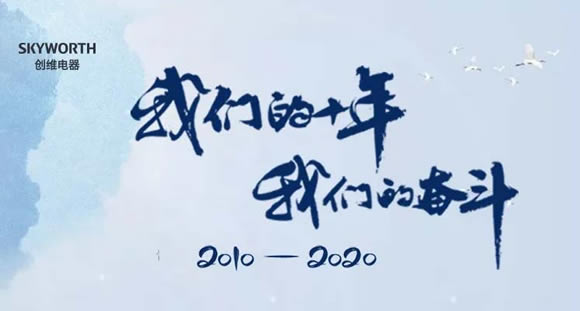 SKYWORTH
创维电器
我们的十年
我们的奋斗
2010 — 2020